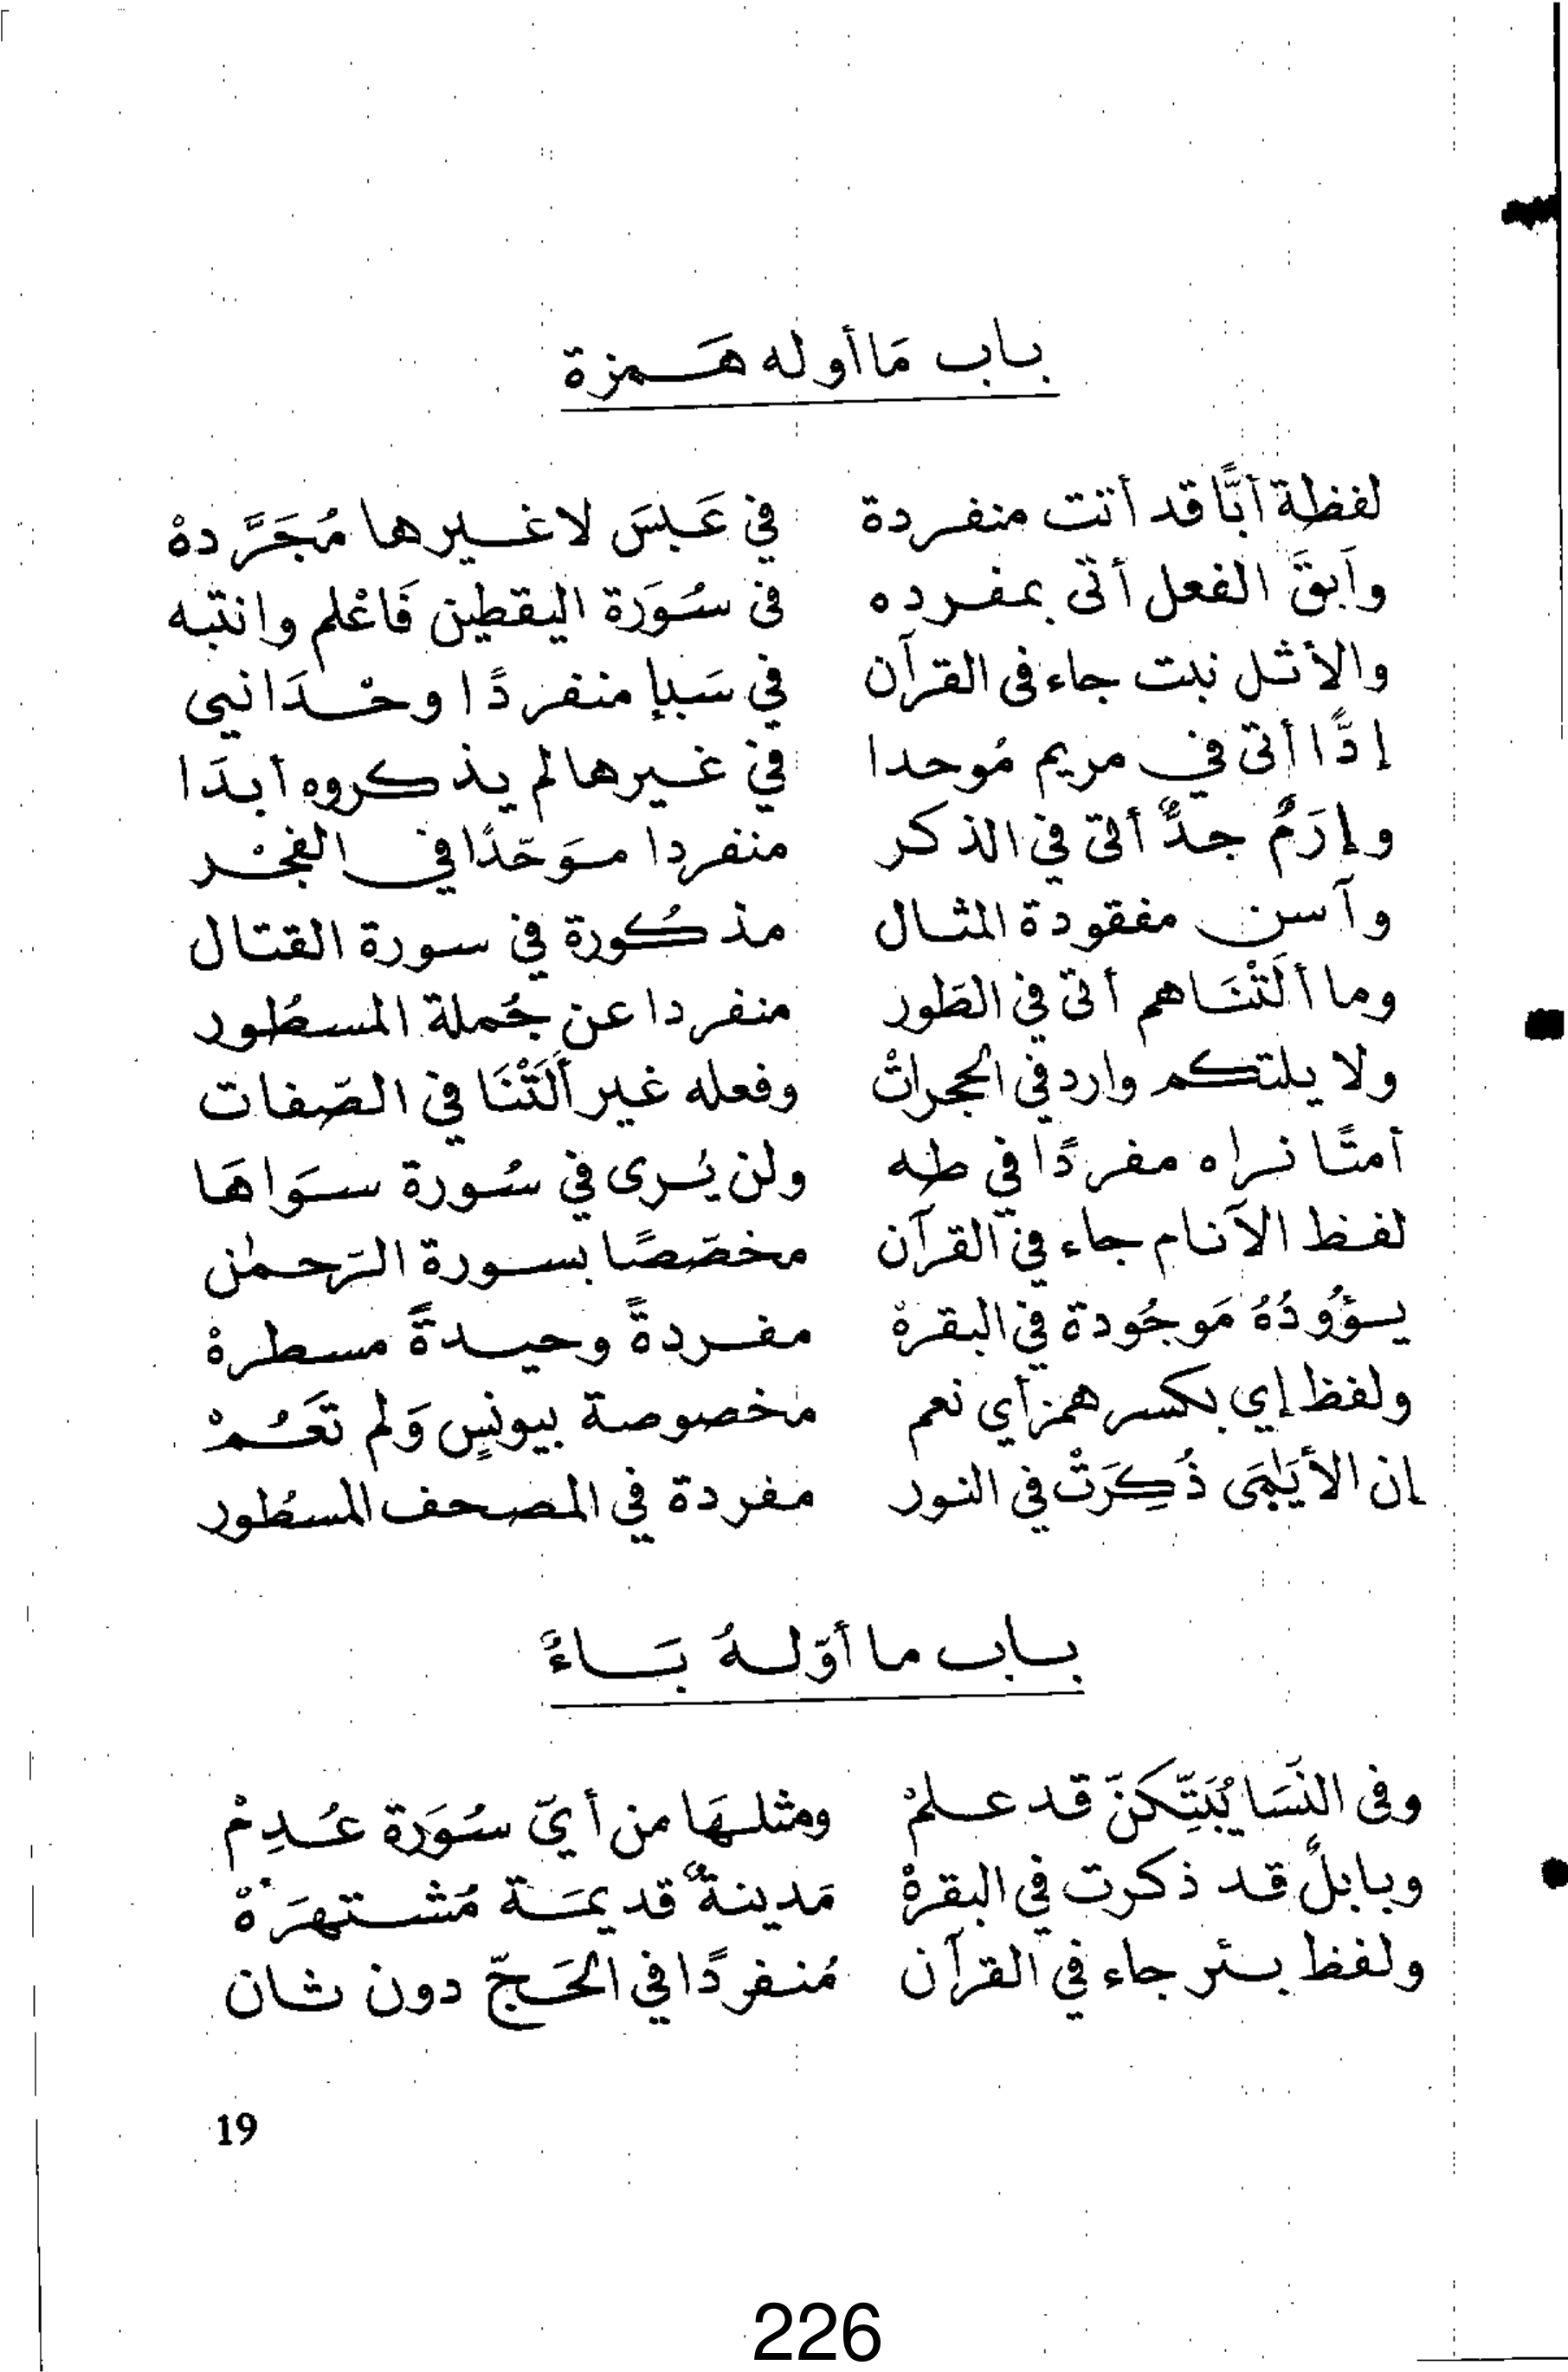 باب مَا أوله هَمزة
لفظة أبًّا قد أتت منفردة في عَبسَ لا غيرها مُجَرَّدهْ
وآبَقَ الفعل أتى بمفرده فى سُوَرة اليقطين فَاعْلم وانتبه
والأثل نبت جاء فى القرآن في سَبإ منفردًا وحْدَاني
إدًّا أتى في مريم مُوحدا في غيرها لم يذكروه أبدَا
وإرَمٌ جدٌّ أتى في الذكر منفردا موَحّدًا في الفجْر
وآسن مفقودة المثال مذكُورة في سورة القتال
وما ألَتْنَاهم أتى في الطَور منفردا عن جُملة المسطُور
ولا يلتكم وارد في الحجراتْ وفعله غير ألَتْنَا في الصّفات
أمتًا نراه مفردًا في طه ولن يُرى في سُورة سوَاهَا
لفظ الآنام جاء في القرآن مخصّصًا بسورة الرَحمٰن
يؤُودُهُ مَوجُودة في البقرهْ مفردةً وحيدةً مسطرهْ
ولفظ إي بكسر همز أي نعم مخصوصة بيونسٍ وَلم تَعَُمْ
إن الأيَٰمَى ذُكِرَتْ في النور مفردة في المصحف المسطُور
باب ما أوّلهُ بَاءً
وفى النَسَا يُبَتِّكَنّ قد علمْ ومثلهَا من أيّ سُوَرة عُدِمْ
وبابلٌ قد ذكرت في البقرهْ مَدينةٌ قديمَة مُشتهرَهْ
ولفظ بئر جاء في القرآن مُنفردًا في الحَجّ دون ثان
19
226